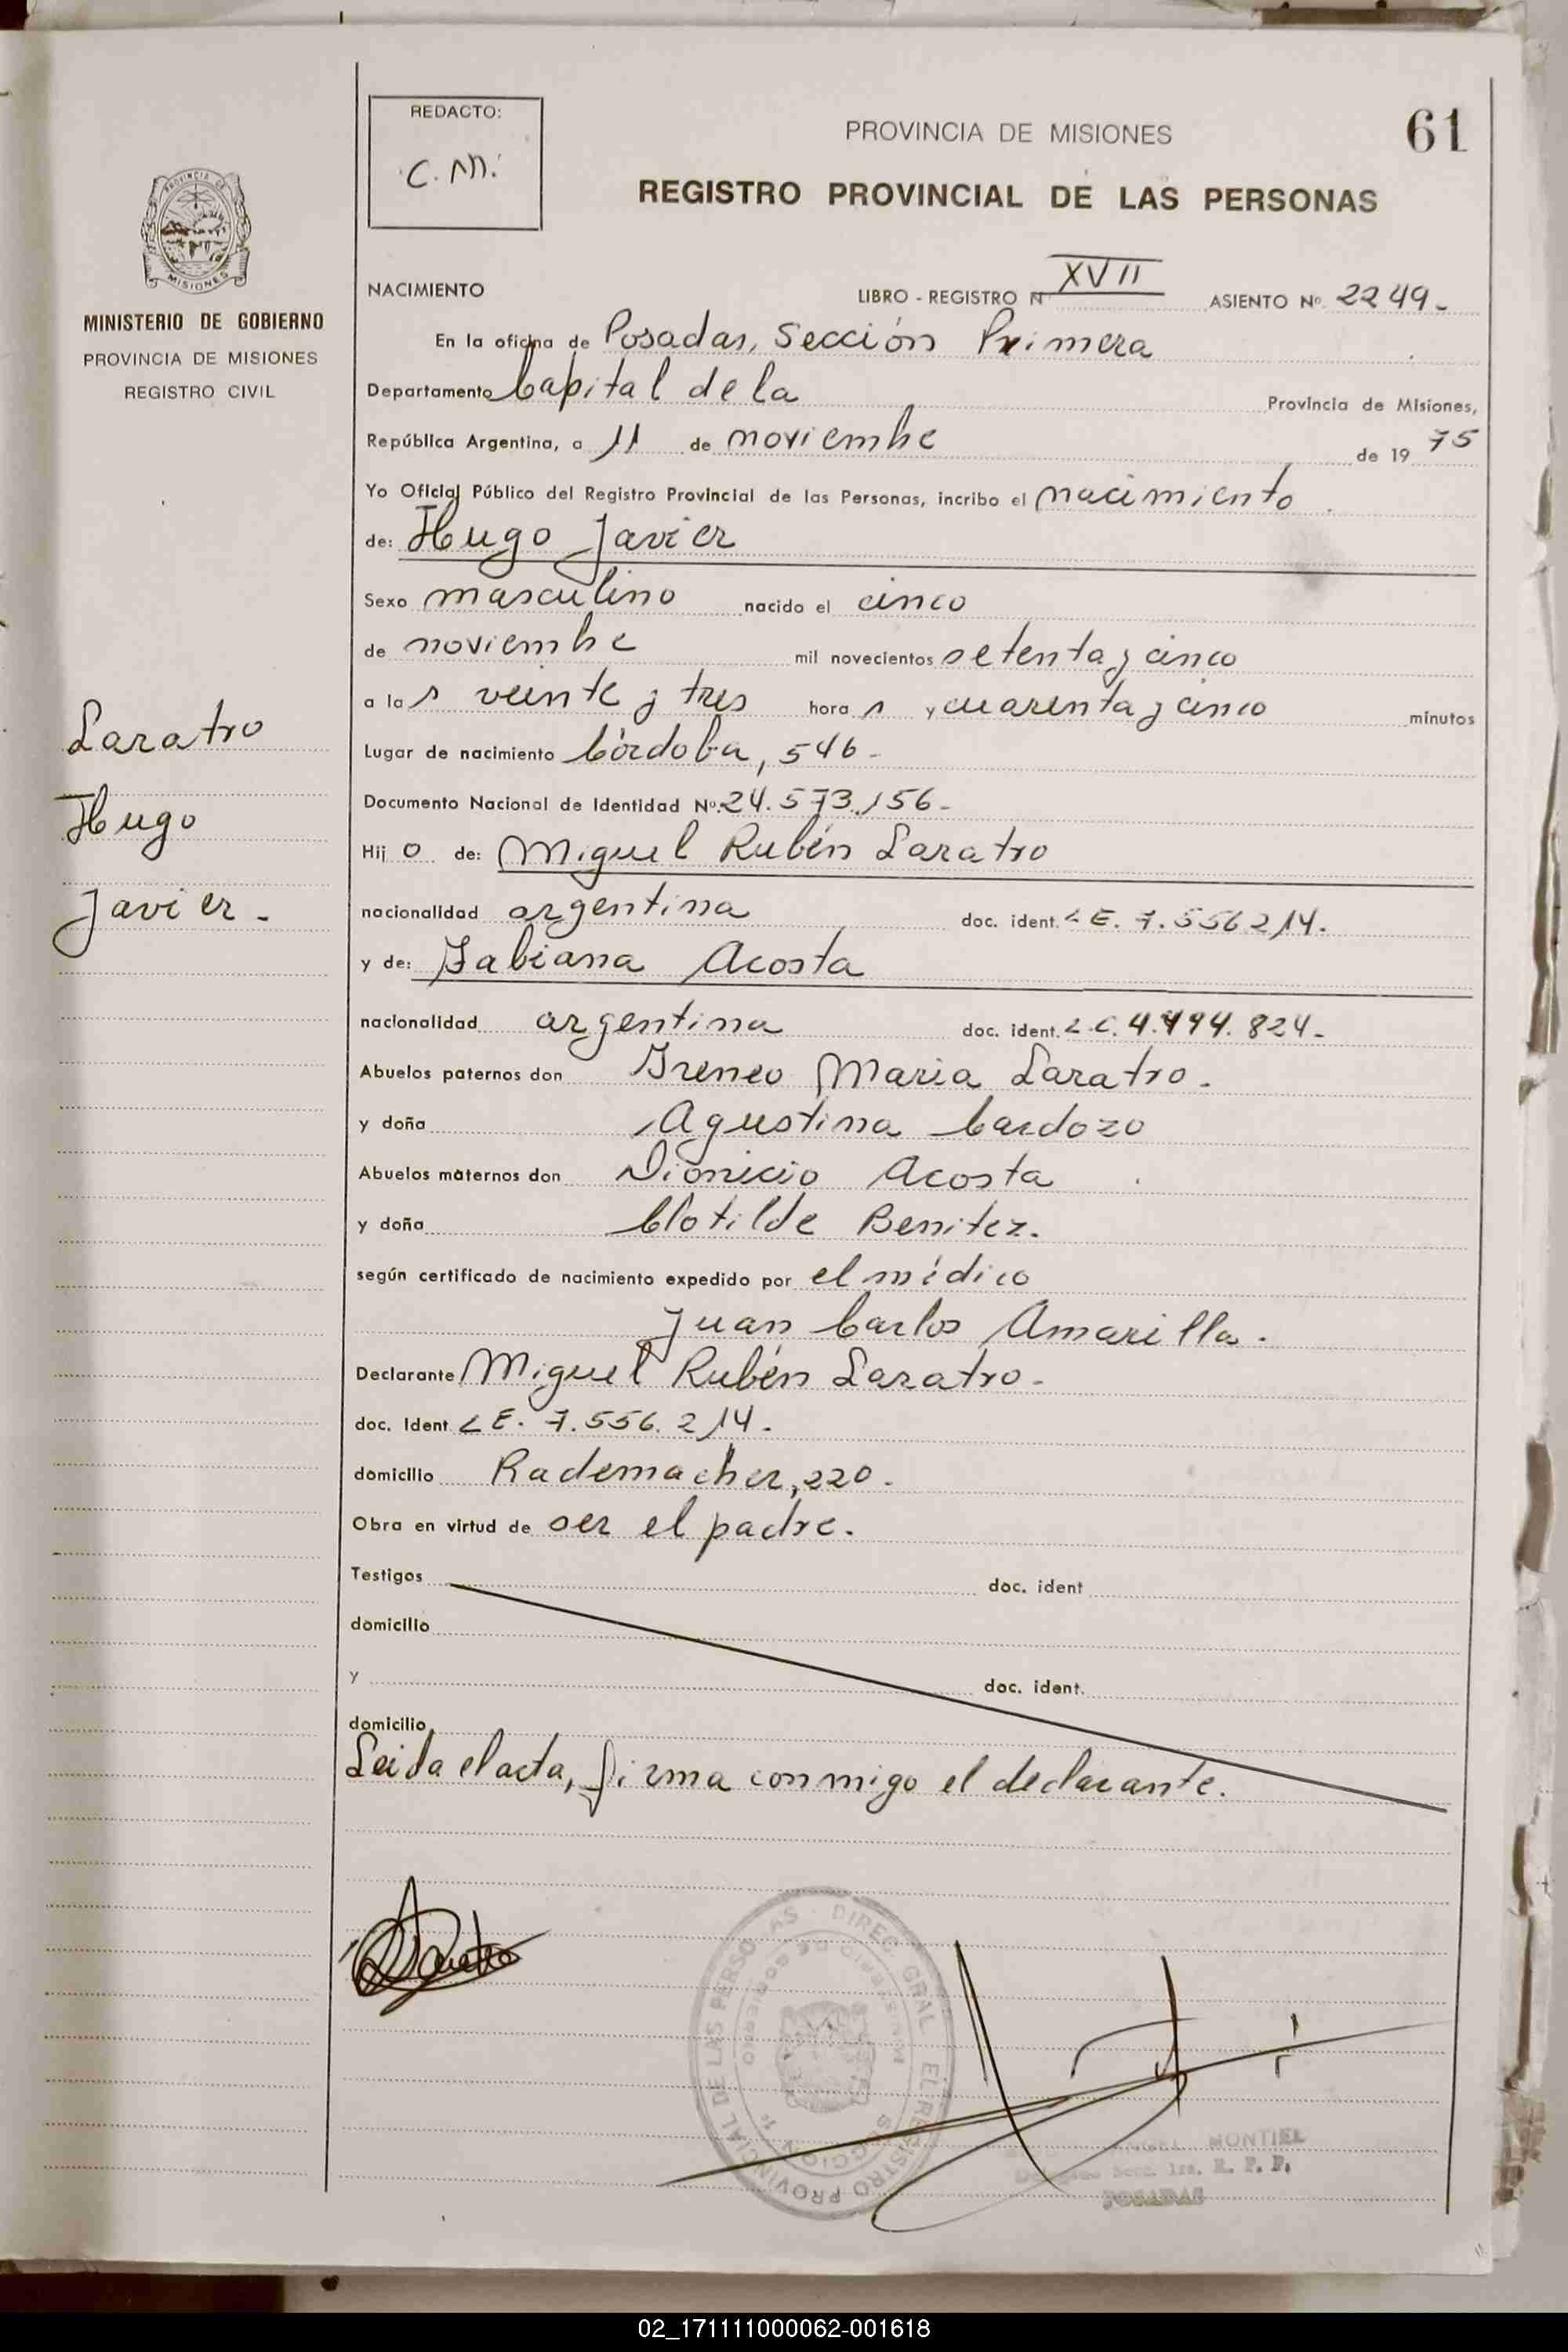 REDACTO:
C. M.
PROVINCIA DE MISIONES
61
REGISTRO PROVINCIAL DE LAS PERSONAS
PROVINCIA DE
MISIONES
MINISTERIO DE GOBIERNO
PROVINCIA DE MISIONES
REGISTRO CIVIL
NACIMIENTO LIBRO - REGISTRO Nº XVII ASIENTO Nº 2249-
En la oficina de Posadas, Sección Primera
Departamento Capital de la Provincia de Misiones,
República Argentina, a 11 de noviembre de 1975
Yo Oficial Público del Registro Provincial de las Personas, incribo el nacimiento
de: Hugo Javier
Sexo masculino nacido el cinco
de noviembre mil novecientos setenta y cinco
a las veinte y tres horas y cuarenta y cinco minutos
Lugar de nacimiento Córdoba, 546-
Documento Nacional de Identidad Nº 24.573.156-
Hijo de: Miguel Rubén Laratro
nacionalidad argentina doc. ident. L E. 7.556214.
y de: Fabiana Acosta
nacionalidad argentina doc. ident. L.C. 4.494.824-
Abuelos paternos don Ireneo Maria Laratro.
y doña Agustina Cardozo
Abuelos maternos don Dionicio Acosta
y doña Clotilde Benitez.
según certificado de nacimiento expedido por el médico
Juan Carlos Amarilla.
Declarante Miguel Rubén Laratro-
doc. Ident L E. 7.556.214.
domicilio Rademacher, 220.
Obra en virtud de ser el padre.
Testigos doc. ident
domicilio
y doc. ident.
domicilio
Leida el acta, firma conmigo el declarante.
Laratro
Hugo
Javier-
DIREC. GRAL. EL REGISTRO PROVINCIAL DE LAS PERSONAS
MINISTERIO DE GOBIERNO
SECCION 1ª
ANGEL MONTIEL
Secc. 1ra. R. P. P.
POSADAS
02_171111000062-001618